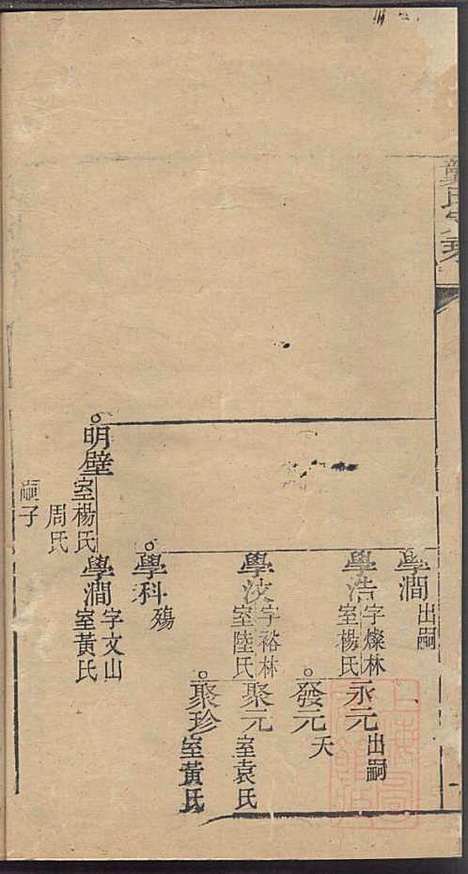 學澗 出嗣
學浩 字燦林 室楊氏
永元 出嗣
發元 夭
學汶 字裕林 室陸氏
聚元 室袁氏
聚珍 室黃氏
學科 殤
明璧 室楊氏 周氏 嗣子
學澗 字文山 室黃氏